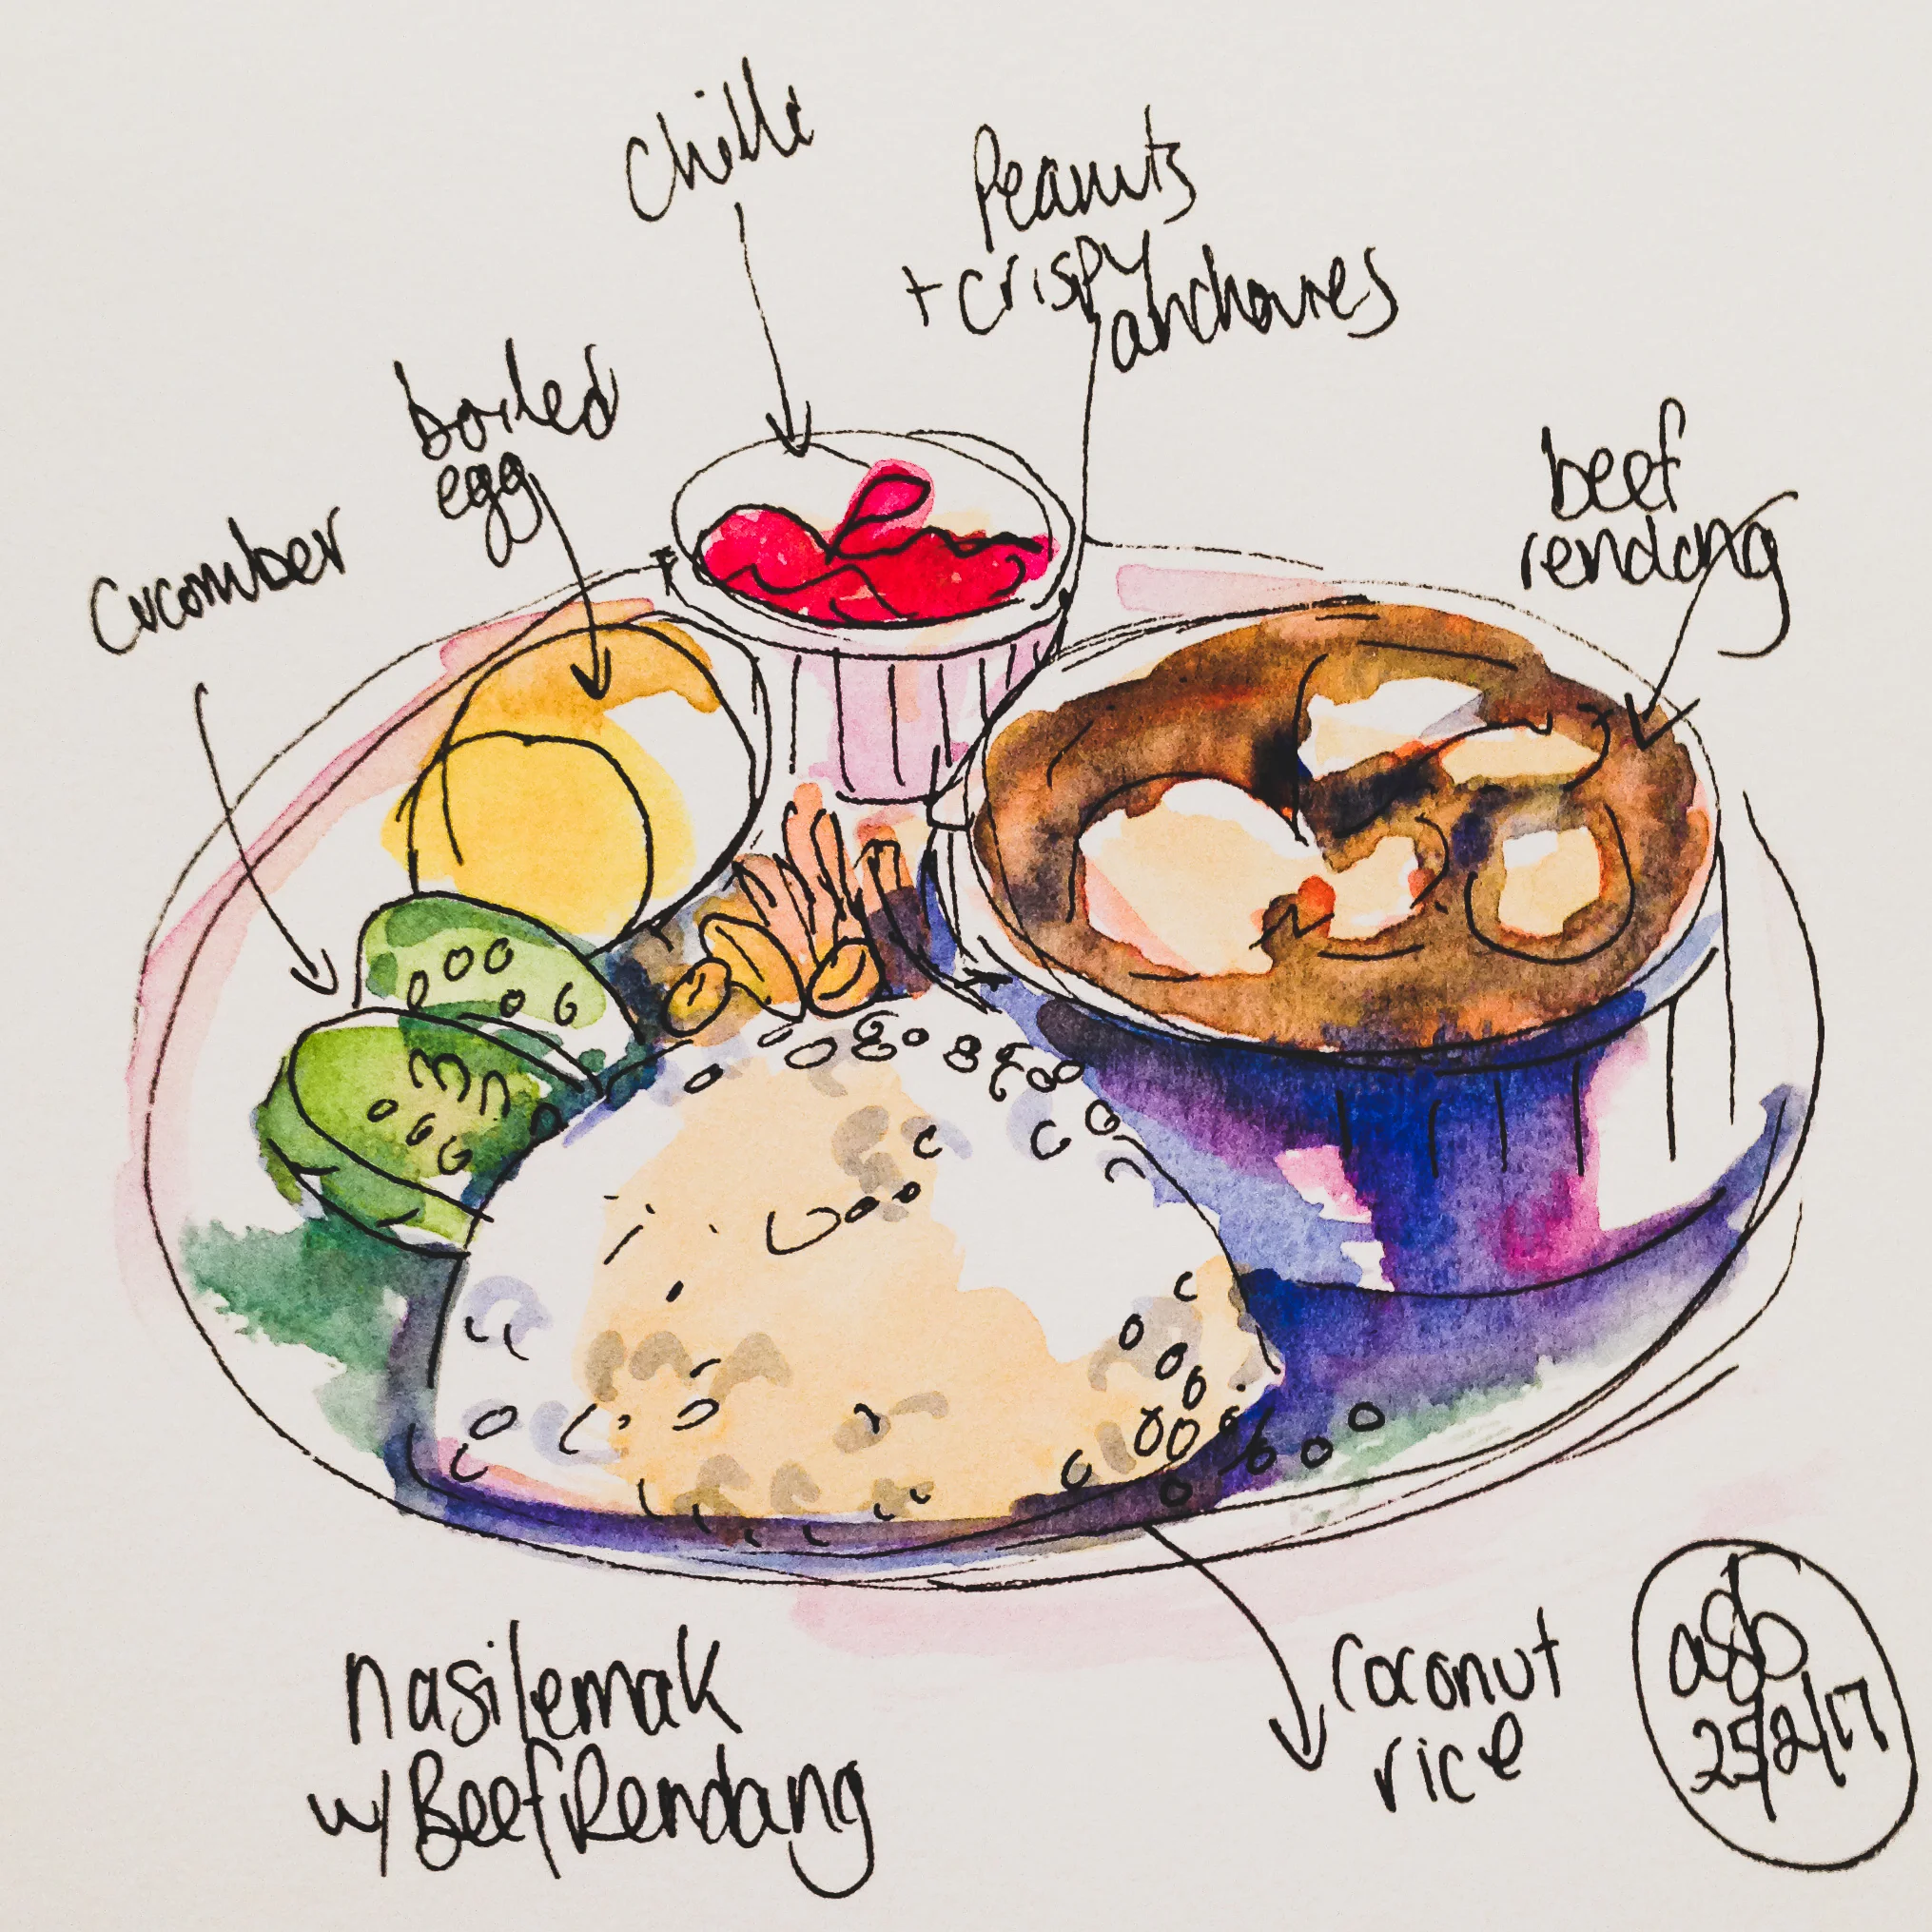 chilli
Peanuts
+ crispy
anchovies
boiled
egg
beef
rendang
cucumber
nasi lemak
w/ Beef Rendang
coconut
rice
asb
25/2/17